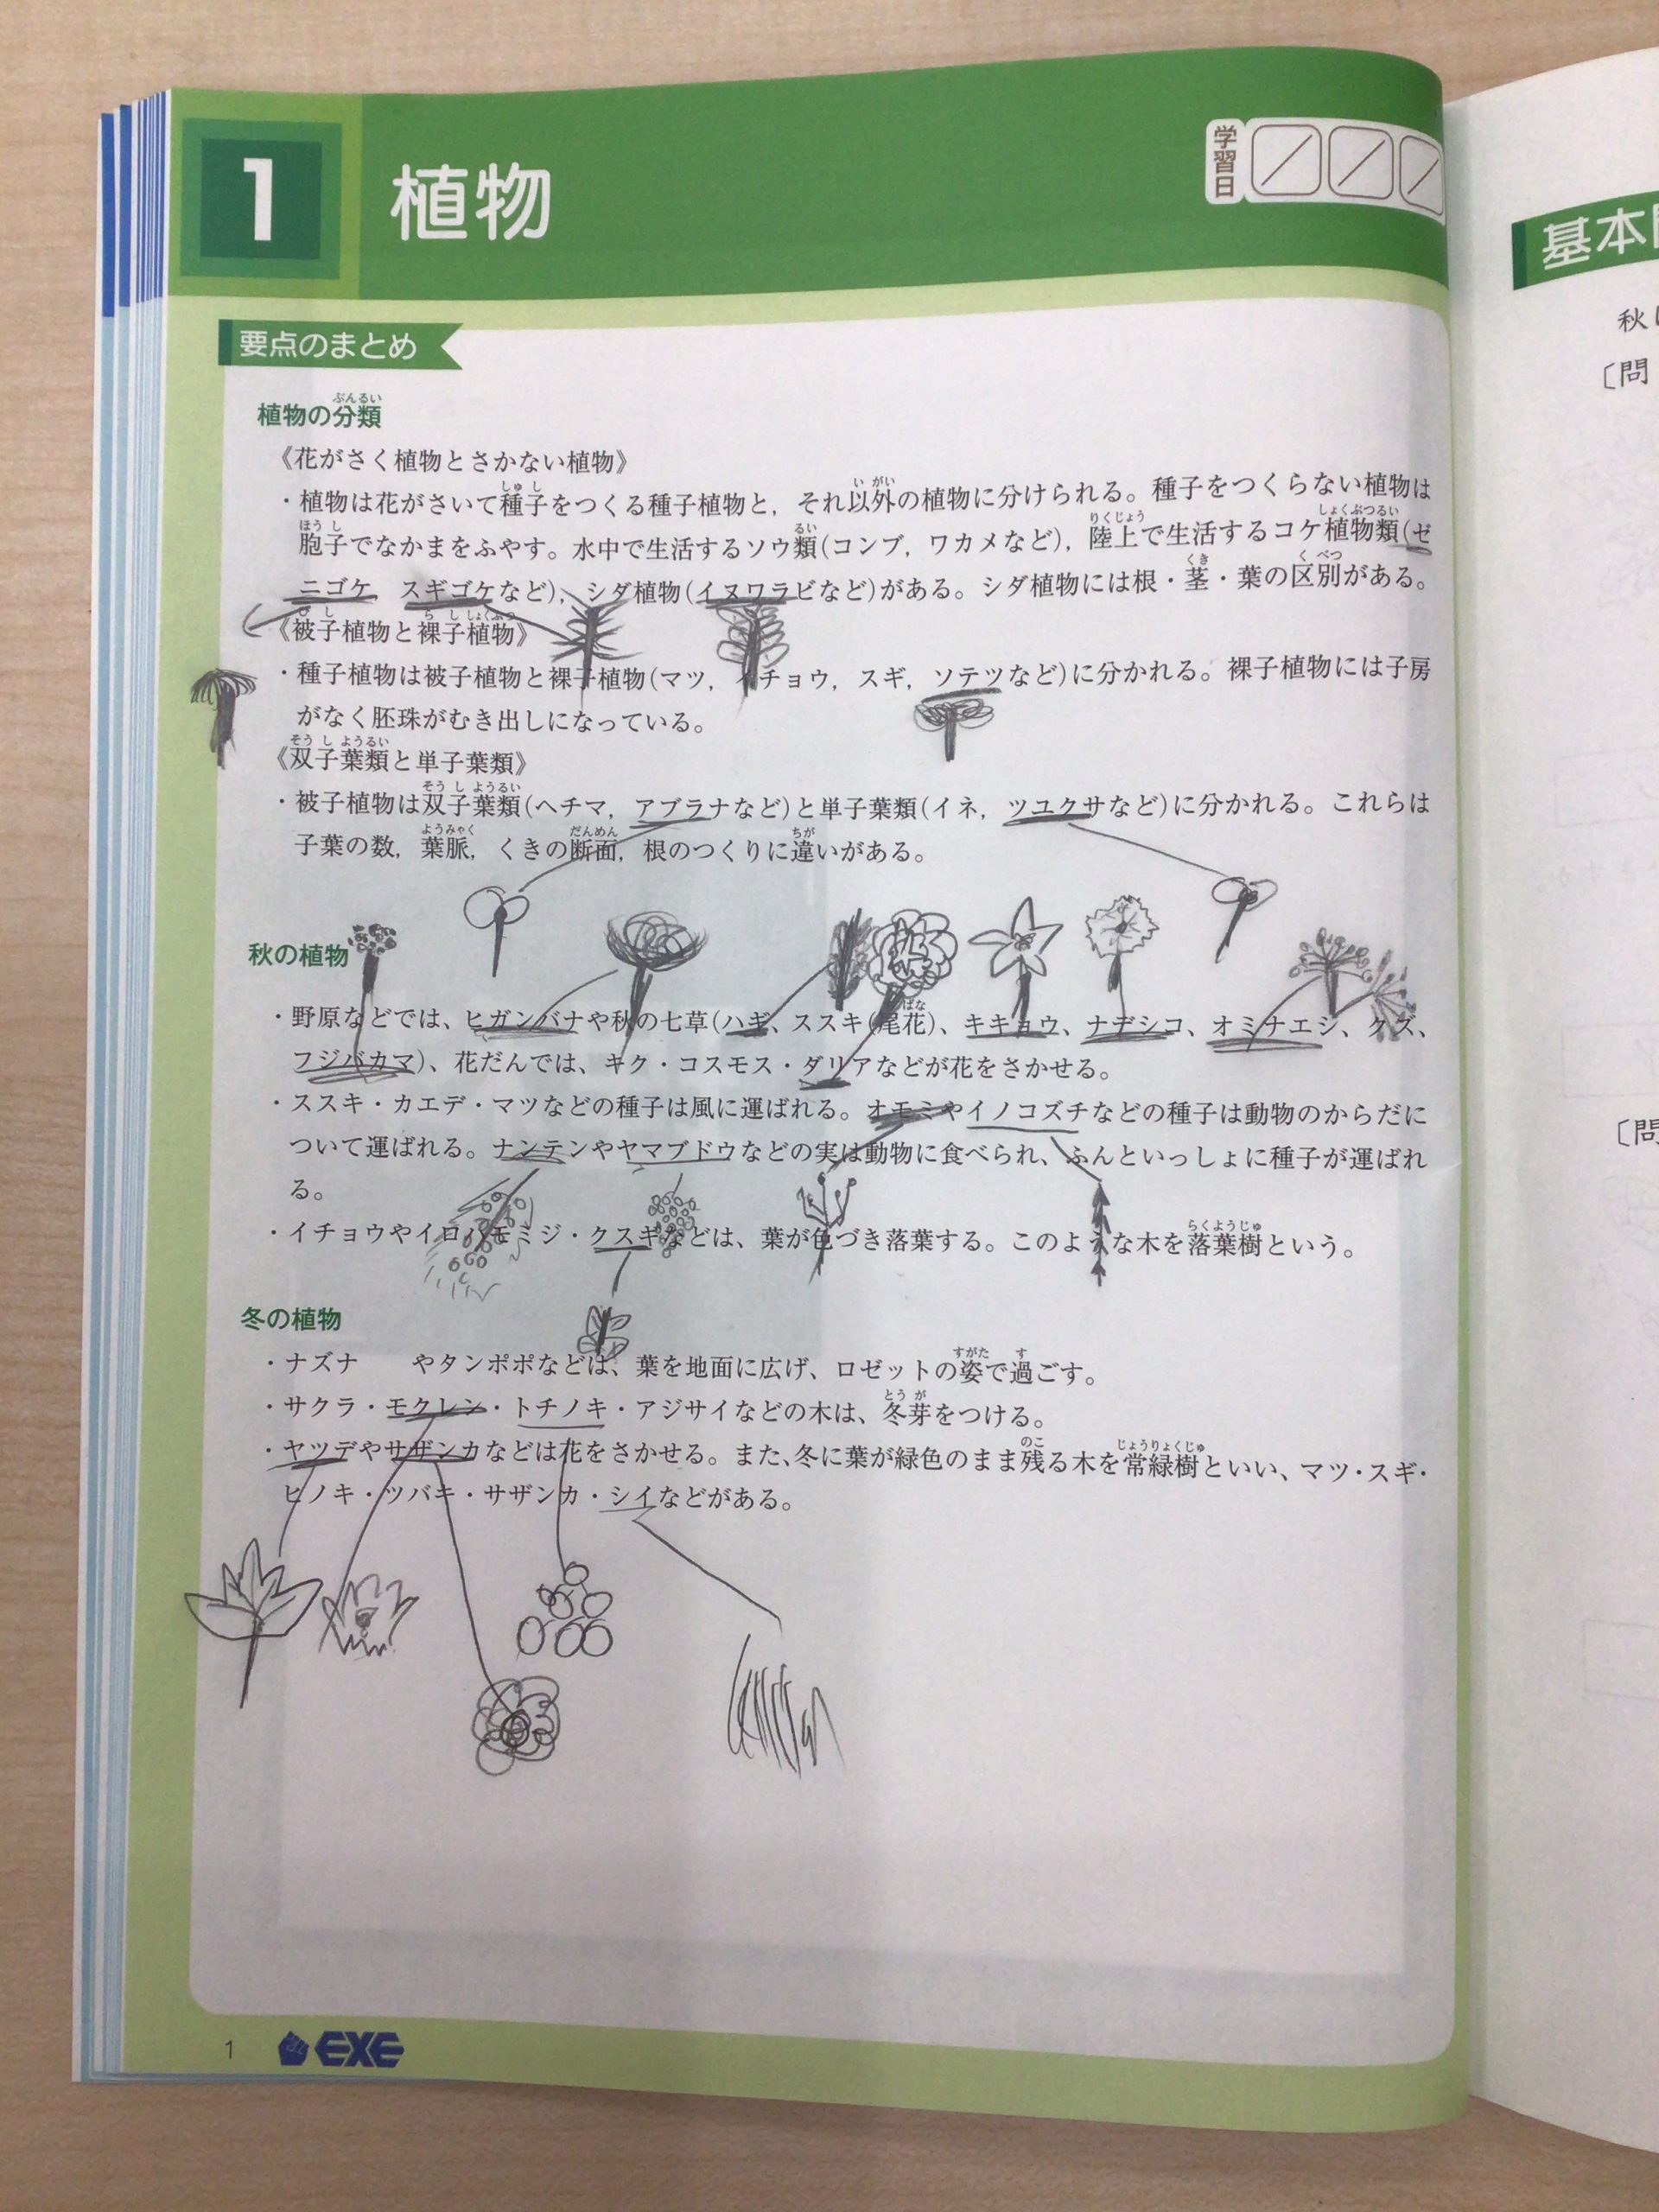 1 植物
学習日
要点のまとめ
植物の分類
《花がさく植物とさかない植物》
・植物は花がさいて種子をつくる種子植物と，それ以外の植物に分けられる。種子をつくらない植物は
胞子でなかまをふやす。水中で生活するソウ類(コンブ，ワカメなど)，陸上で生活するコケ植物類(ゼ
ニゴケ　スギゴケなど)，シダ植物(イヌワラビなど)がある。シダ植物には根・茎・葉の区別がある。
《被子植物と裸子植物》
・種子植物は被子植物と裸子植物(マツ，イチョウ，スギ，ソテツなど)に分かれる。裸子植物には子房
がなく胚珠がむき出しになっている。
《双子葉類と単子葉類》
・被子植物は双子葉類(ヘチマ，アブラナなど)と単子葉類(イネ，ツユクサなど)に分かれる。これらは
子葉の数，葉脈，くきの断面，根のつくりに違いがある。
秋の植物
・野原などでは、ヒガンバナや秋の七草(ハギ、ススキ(尾花)、キキョウ、ナデシコ、オミナエシ、クズ、
フジバカマ)、花だんでは、キク・コスモス・ダリアなどが花をさかせる。
・ススキ・カエデ・マツなどの種子は風に運ばれる。オモミやイノコズチなどの種子は動物のからだに
ついて運ばれる。ナンテンやヤマブドウなどの実は動物に食べられ、ふんといっしょに種子が運ばれ
る。
・イチョウやイロハモミジ・クスギなどは、葉が色づき落葉する。このような木を落葉樹という。
冬の植物
・ナズナ　　やタンポポなどは、葉を地面に広げ、ロゼットの姿で過ごす。
・サクラ・モクレン・トチノキ・アジサイなどの木は、冬芽をつける。
・ヤツデやサザンカなどは花をさかせる。また、冬に葉が緑色のまま残る木を常緑樹といい、マツ・スギ・
ヒノキ・ツバキ・サザンカ・シイなどがある。
1 EXE
基本
秋
〔問
〔問